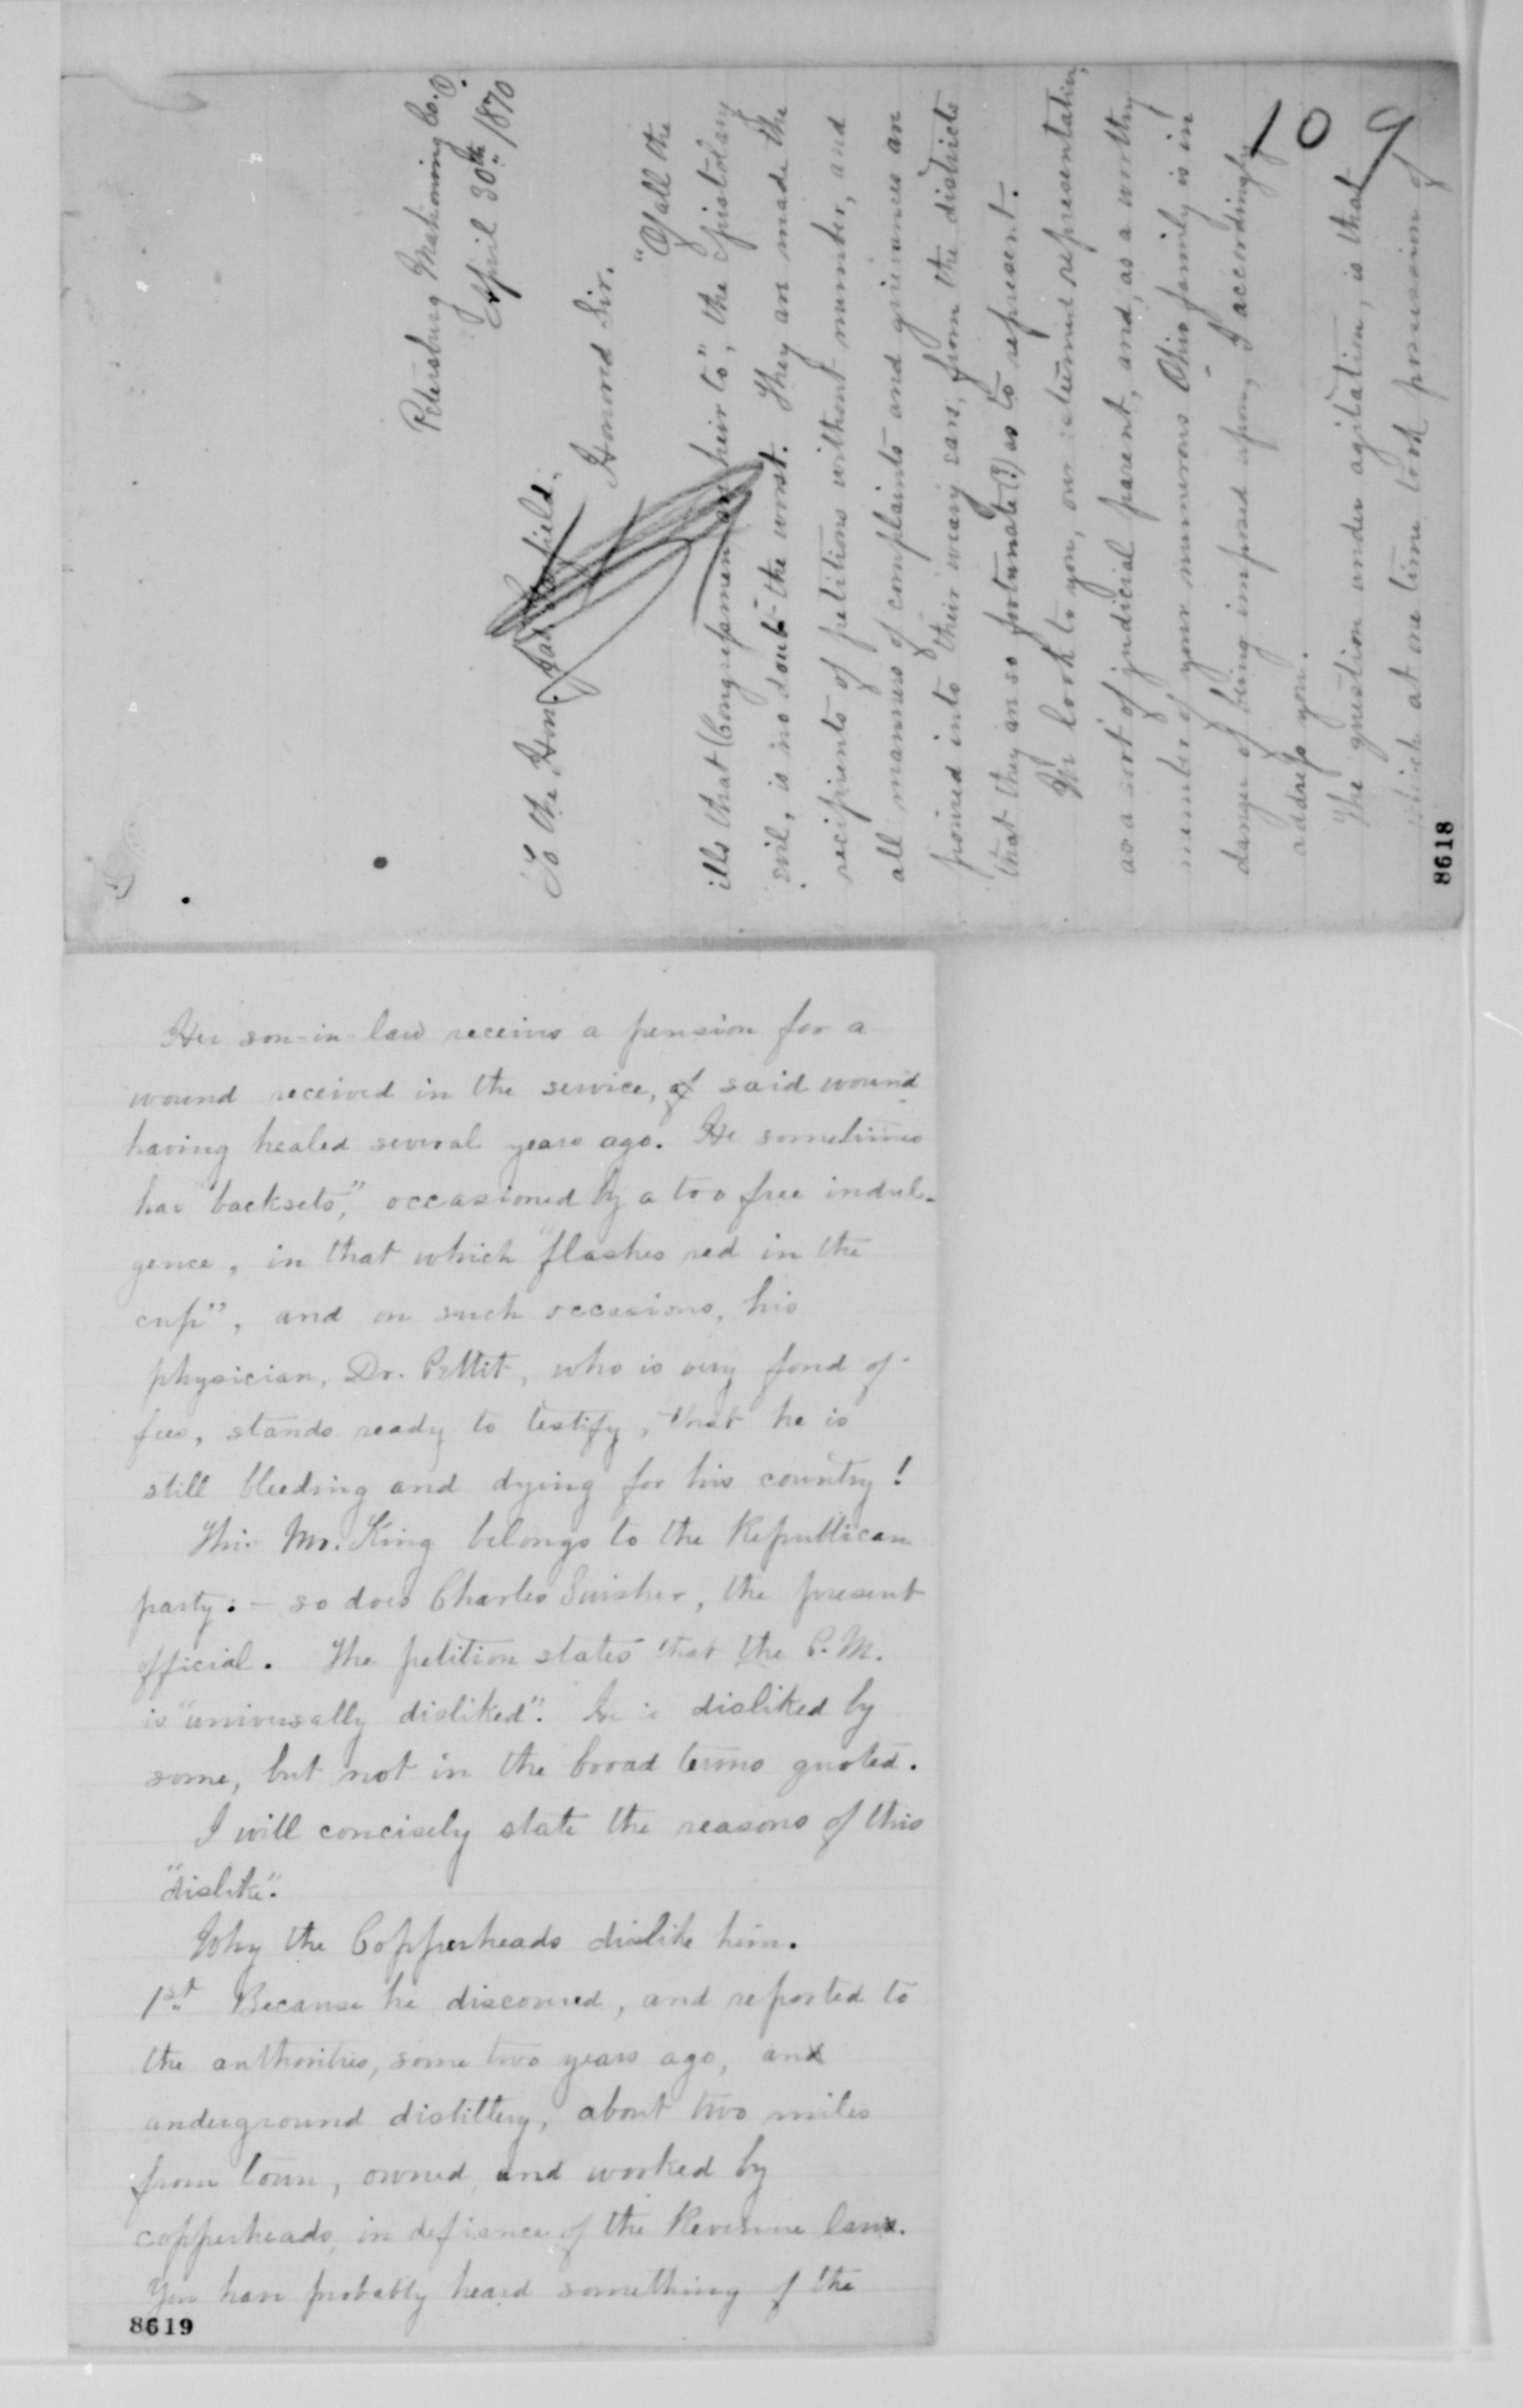 Petersburg Mahoning Co. O.
April 30th 1870
To the Hon. Jas. Garfield.
Honored Sir.
"Of all the
ills that Congressmen are heir to", the epistolary
evil, is no doubt the worst. They are made the
recipients of petitions without number, and
all manners of complaints and grievances are
poured into their weary ears, from the districts
that they are so fortunate (?) as to represent.
We look to you, our esteemed representative,
as a sort of judicial parent, and, as a worthy
member of your numerous Ohio family is in
danger of being imposed upon, I accordingly
address you.
The question under agitation, is that
which at one time took possession of
109
8618
Her son-in-law receives a pension for a
wound received in the service, of said wound
having healed several years ago. He sometimes
has "backsets," occasioned by a too free indul-
gence, in that which "flashes red in the
cup", and on such occasions, his
physician, Dr. Pettit, who is very fond of
fees, stands ready to testify, that he is
still bleeding and dying for his country!
This Mr. King belongs to the Republican
party: - so does Charles Swisher, the present
official. The petition states that the P. M.
is "universally disliked". He is disliked by
some, but not in the broad terms quoted.
I will concisely state the reasons of this
"dislike".
Why the Copperheads dislike him.
1st Because he discovered, and reported to
the authorities, some two years ago, an
underground distillery, about two miles
from town, owned, and worked by
copperheads, in defiance of the Revenue laws.
You have probably heard something of the
8619